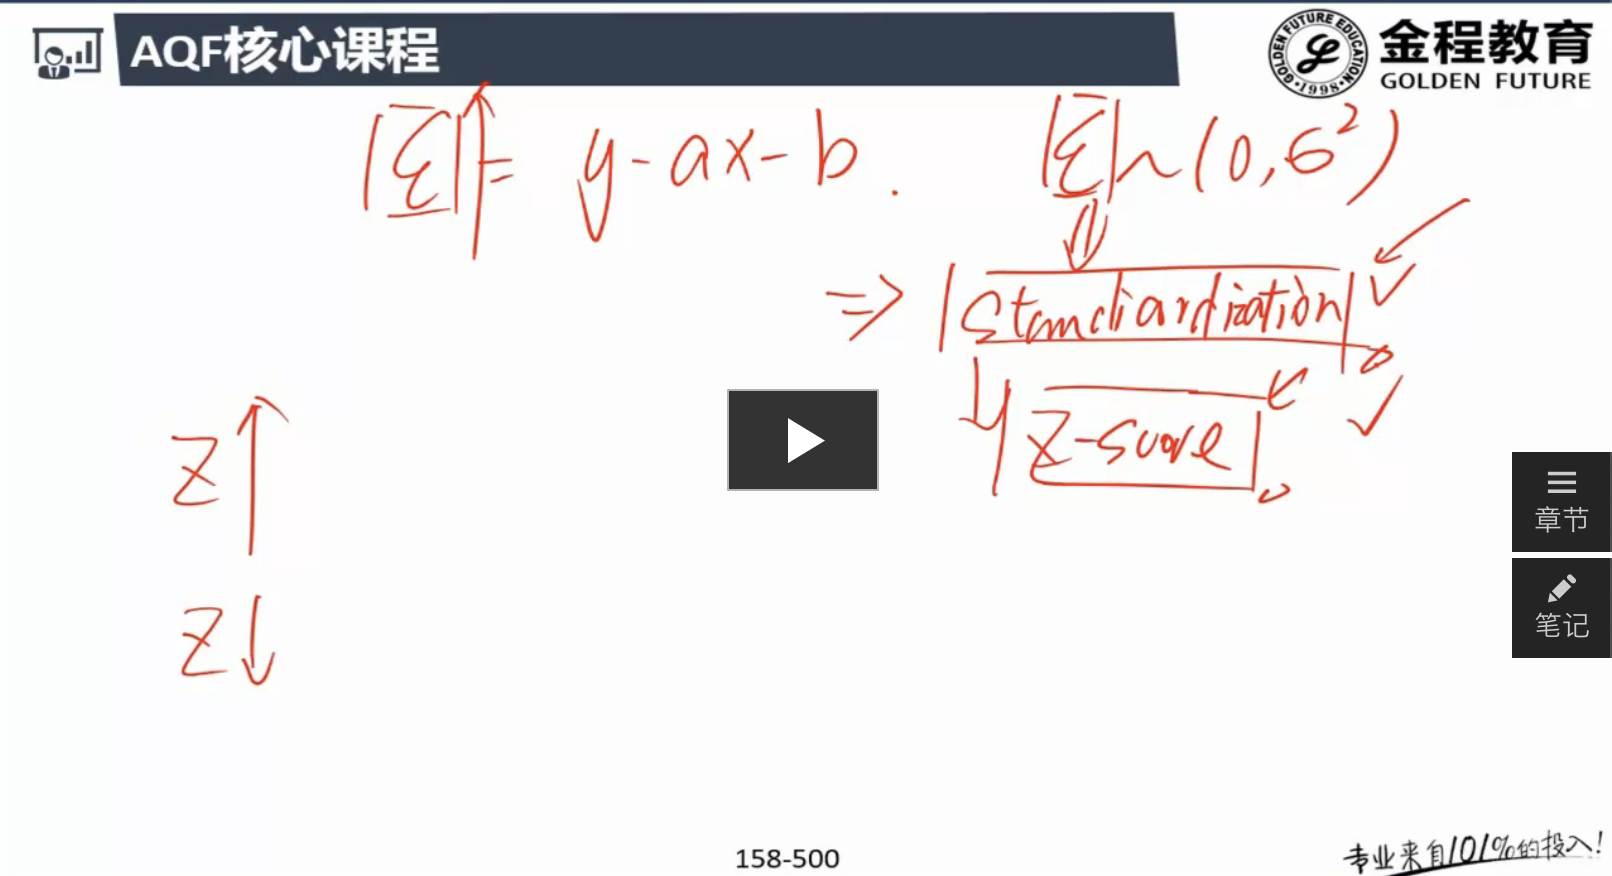 AQF核心课程
GOLDEN FUTURE EDUCATION
·1998·
金程教育
GOLDEN FUTURE
|Σ|↑= y-ax-b.
|Σ|~(0,6²)
=> |Standiardization|
Z-suore
Z↑
Z↓
章节
笔记
158-500
专业来自101%的投入!